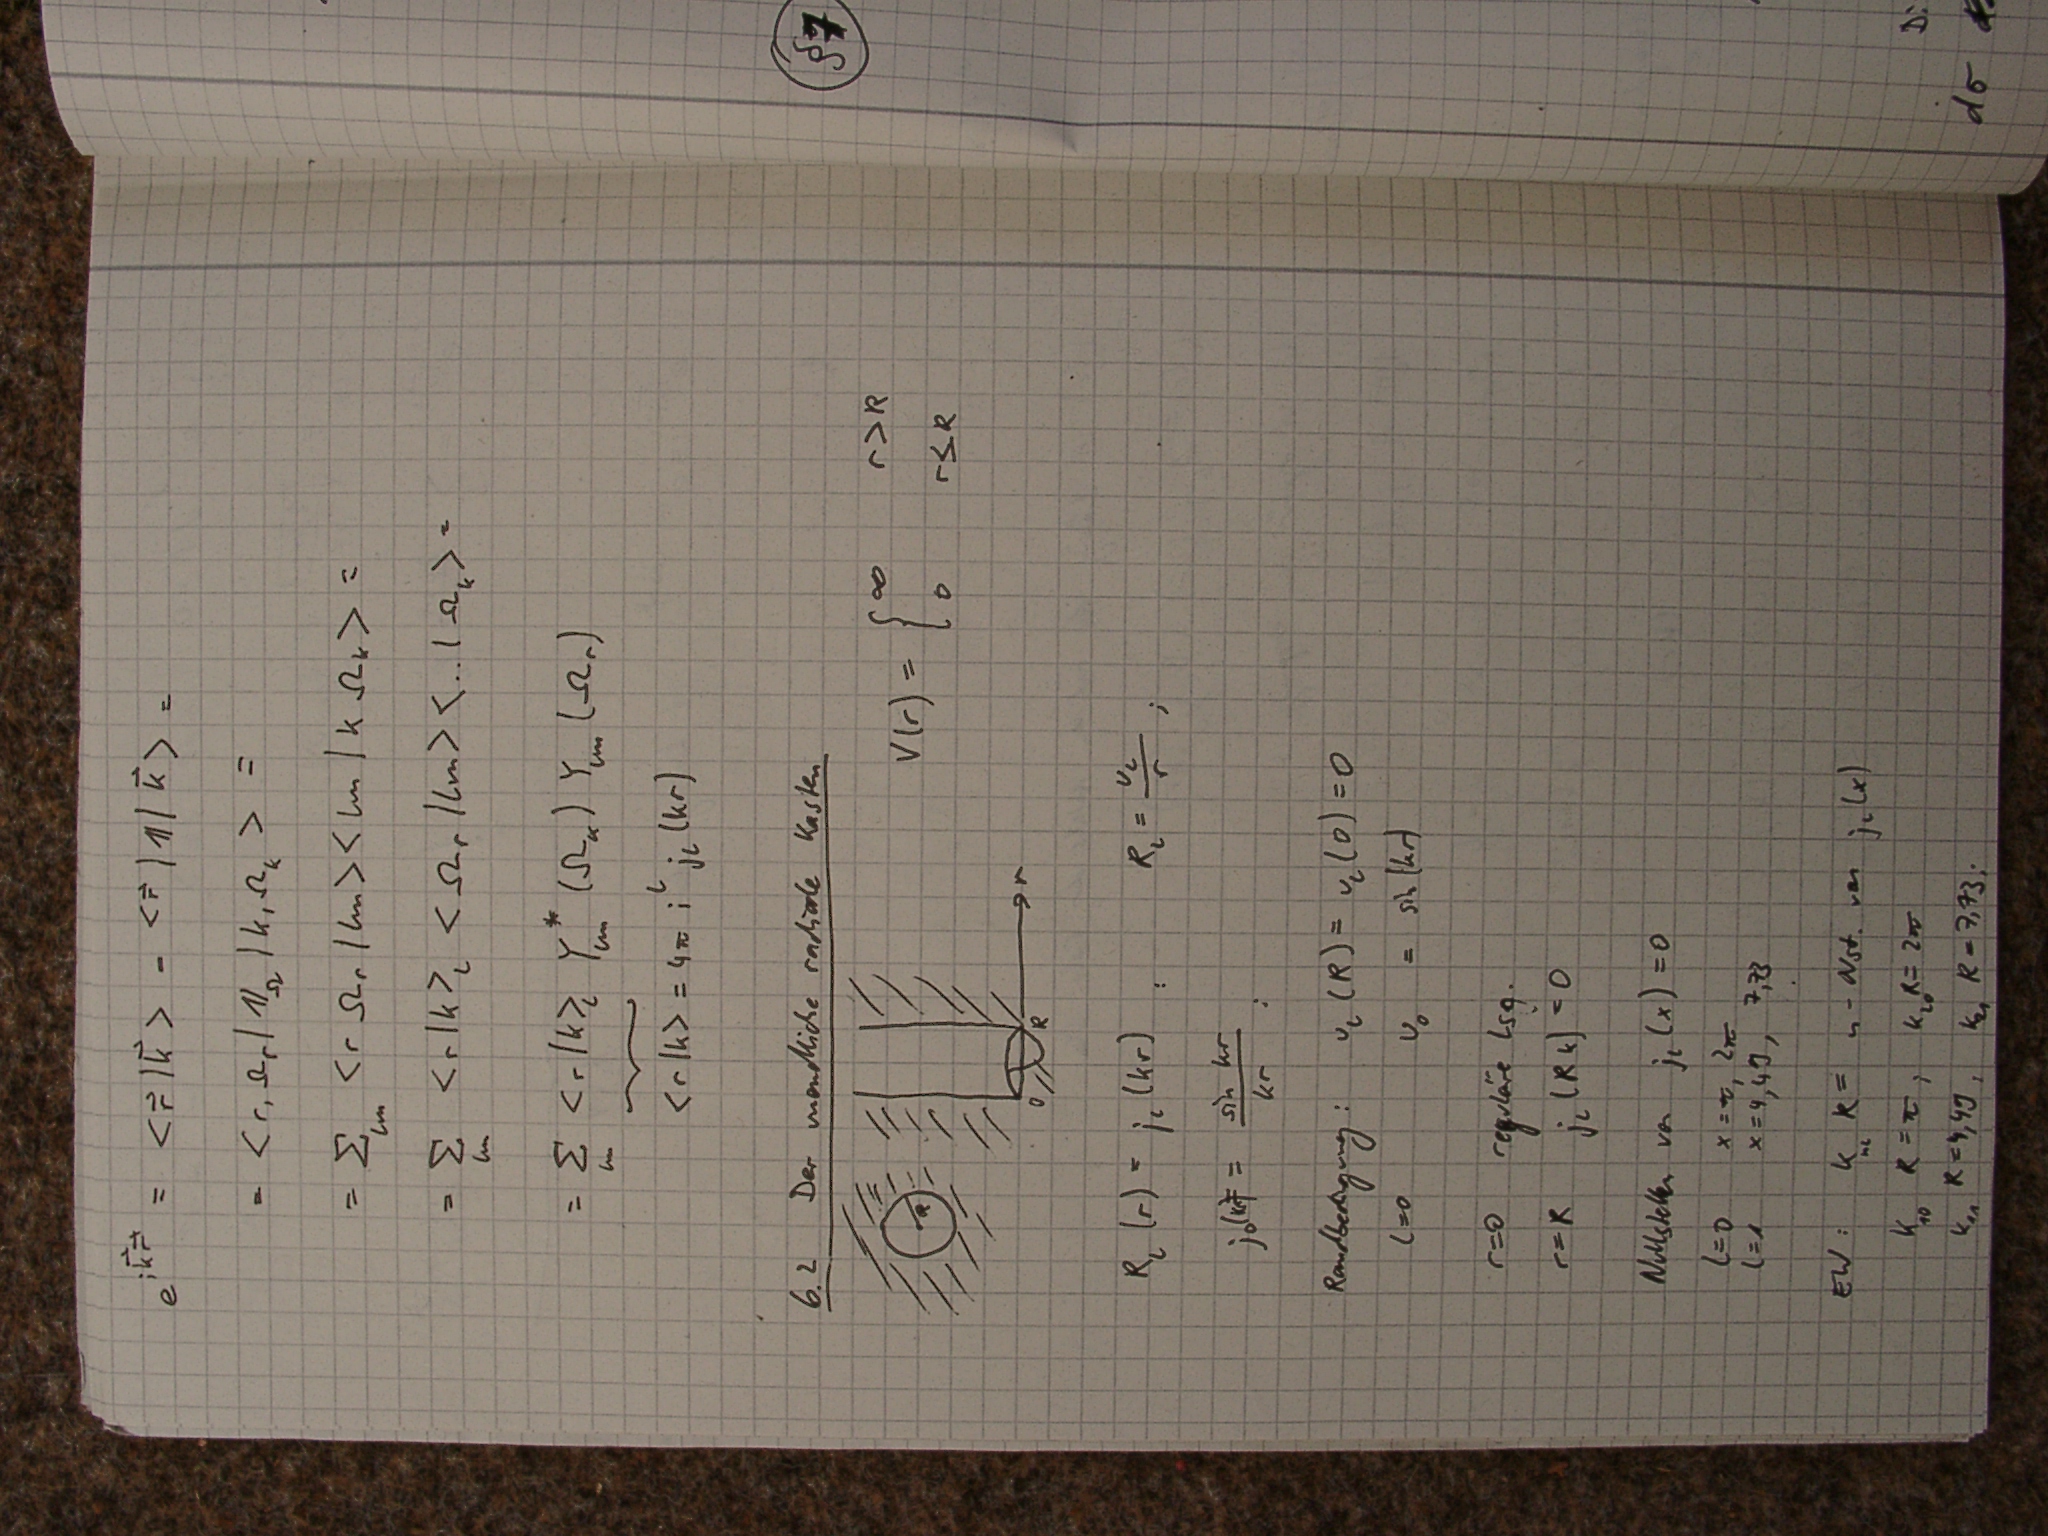 e^{i\vec{k}\vec{r}} = <\vec{r}|\vec{k}> - <\vec{r}|1|\vec{k}> =
= <r, Ω_r|1_Ω|k, Ω_k> =
= Σ_{lm} <r Ω_r|lm><lm|k Ω_k> =
= Σ_{lm} <r|k>_l <Ω_r|lm><...|Ω_k> =
= Σ_{lm} <r|k>_l Y*_{lm} (Ω_k) Y_{lm} (Ω_r)
<r|k> = 4π i^l j_l (kr)
6.2 Der unendliche radiale Kasten
R
0 R r
V(r) = { ∞ r>R
0 r≤R
R_l (r) = j_l (kr) : R_l = u_l/r ;
j_0(kr) = sin kr / kr :
Randbedingung: u_l (R) = u_l (0) = 0
l=0 u_0 = sin(kr)
r=0 reguläre Lsg.
r=R j_l (Rk) = 0
Nullstellen von j_l (x) = 0
l=0 x = π, 2π
l=1 x = 4,49, 7,73
EW: k_{nl} R = n - Nst. von j_l (x)
k_{10} R = π, k_{20} R = 2π
k_{11} R = 4,49, k_{21} R = 7,73.
§7
Di
dσ